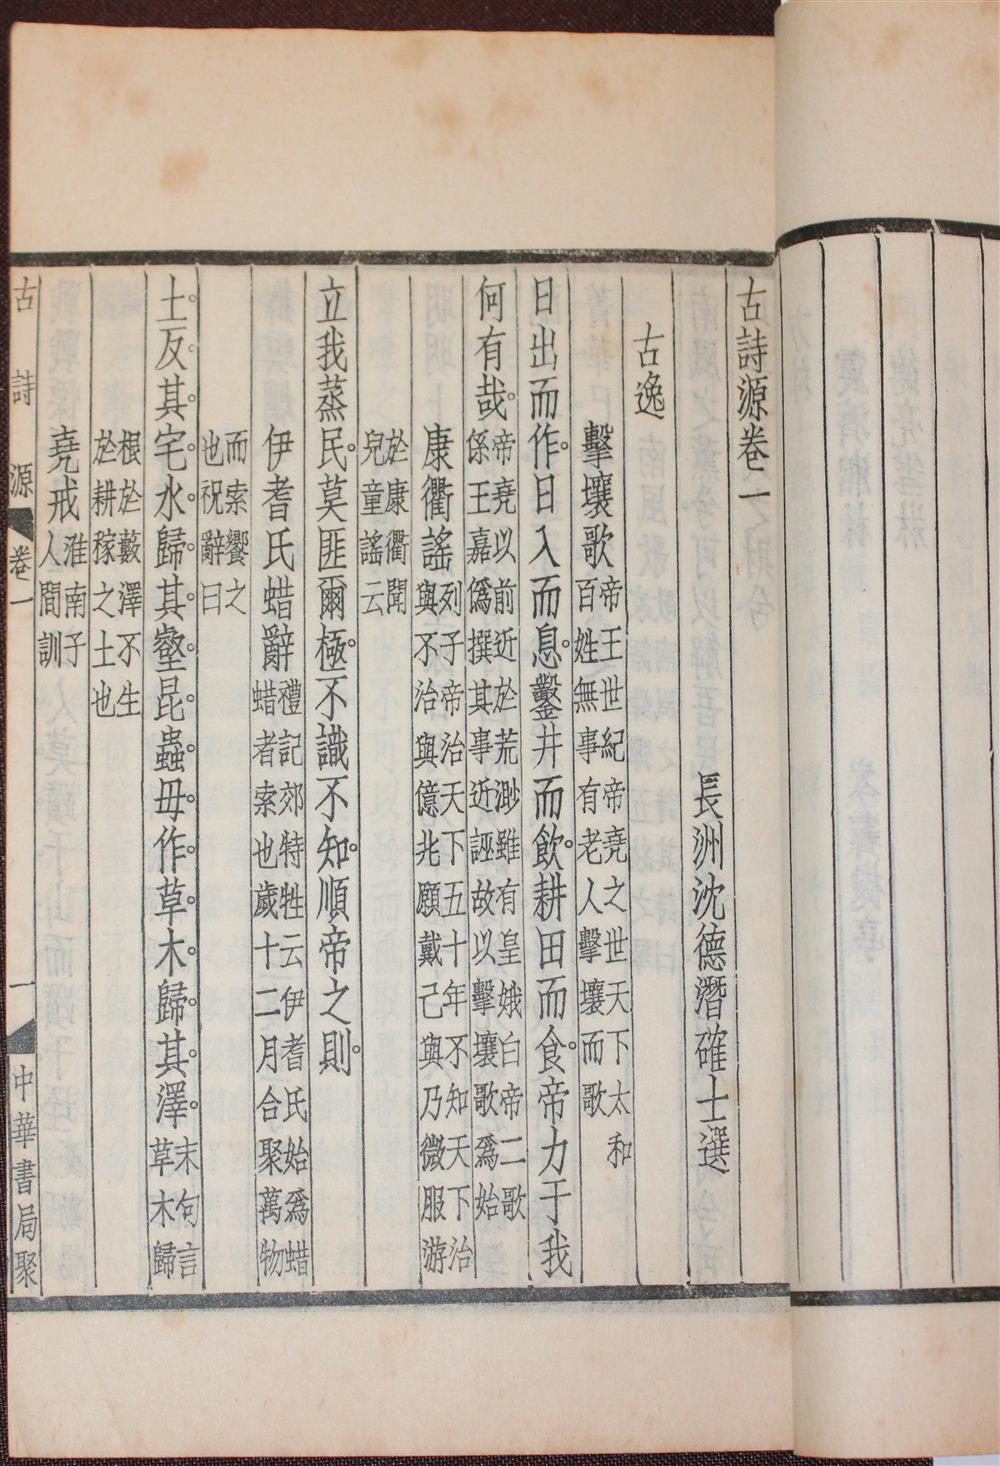 古詩源卷一
長洲沈德潛確士選
古逸
擊壤歌帝王世紀帝堯之世天下太和
百姓無事有老人擊壤而歌
日出而作。日入而息。鑿井而飲。耕田而食。帝力于我
何有哉。帝堯以前近於荒渺雖有皇娥白帝二歌
係王嘉僞撰其事近誣故以擊壤歌爲始
康衢謠列子帝治天下五十年不知天下治
與不治與億兆願戴己與乃微服游
於康衢聞
兒童謠云
立我蒸民。莫匪爾極。不識不知。順帝之則。
伊耆氏蜡辭禮記郊特牲云伊耆氏始爲蜡
蜡者索也歲十二月合聚萬物
而索饗之
也祝辭曰
土反其宅。水歸其壑。昆蟲毋作。草木歸其澤。末句言
草木歸
根於藪澤不生
於耕稼之土也
堯戒淮南子
人間訓
古詩源 卷一 一 中華書局聚